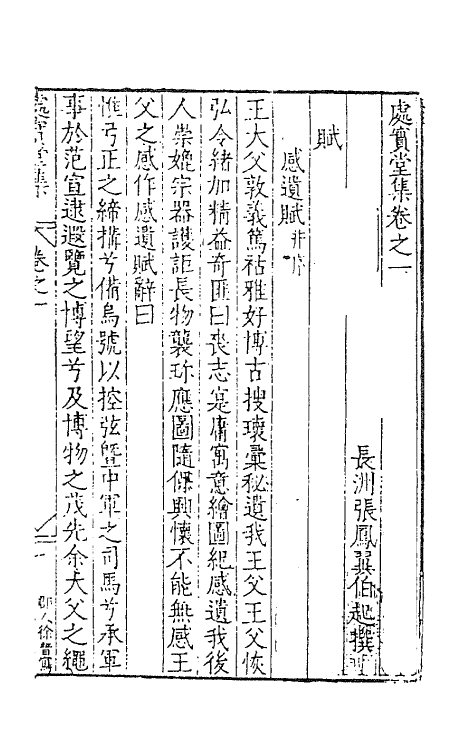 處實堂集卷之一
長洲張鳳翼伯起撰
賦
感遺賦并序
王大父敦義篤祜雅好博古搜瓌彙秘遺我王父王父恢
弘令緒加精益奇匪曰喪志寔庸寓意繪圖紀感遺我後
人崇媲宗器譏詎長物襲珎應圖隨俛興懷不能無感王
父之感作感遺賦辭曰
惟弓正之締搆兮備烏號以控弦曁中軍之司馬兮承軍
事於范宣逮遐覽之博望兮及博物之茂先余大父之繩
處實堂集
卷之一
一